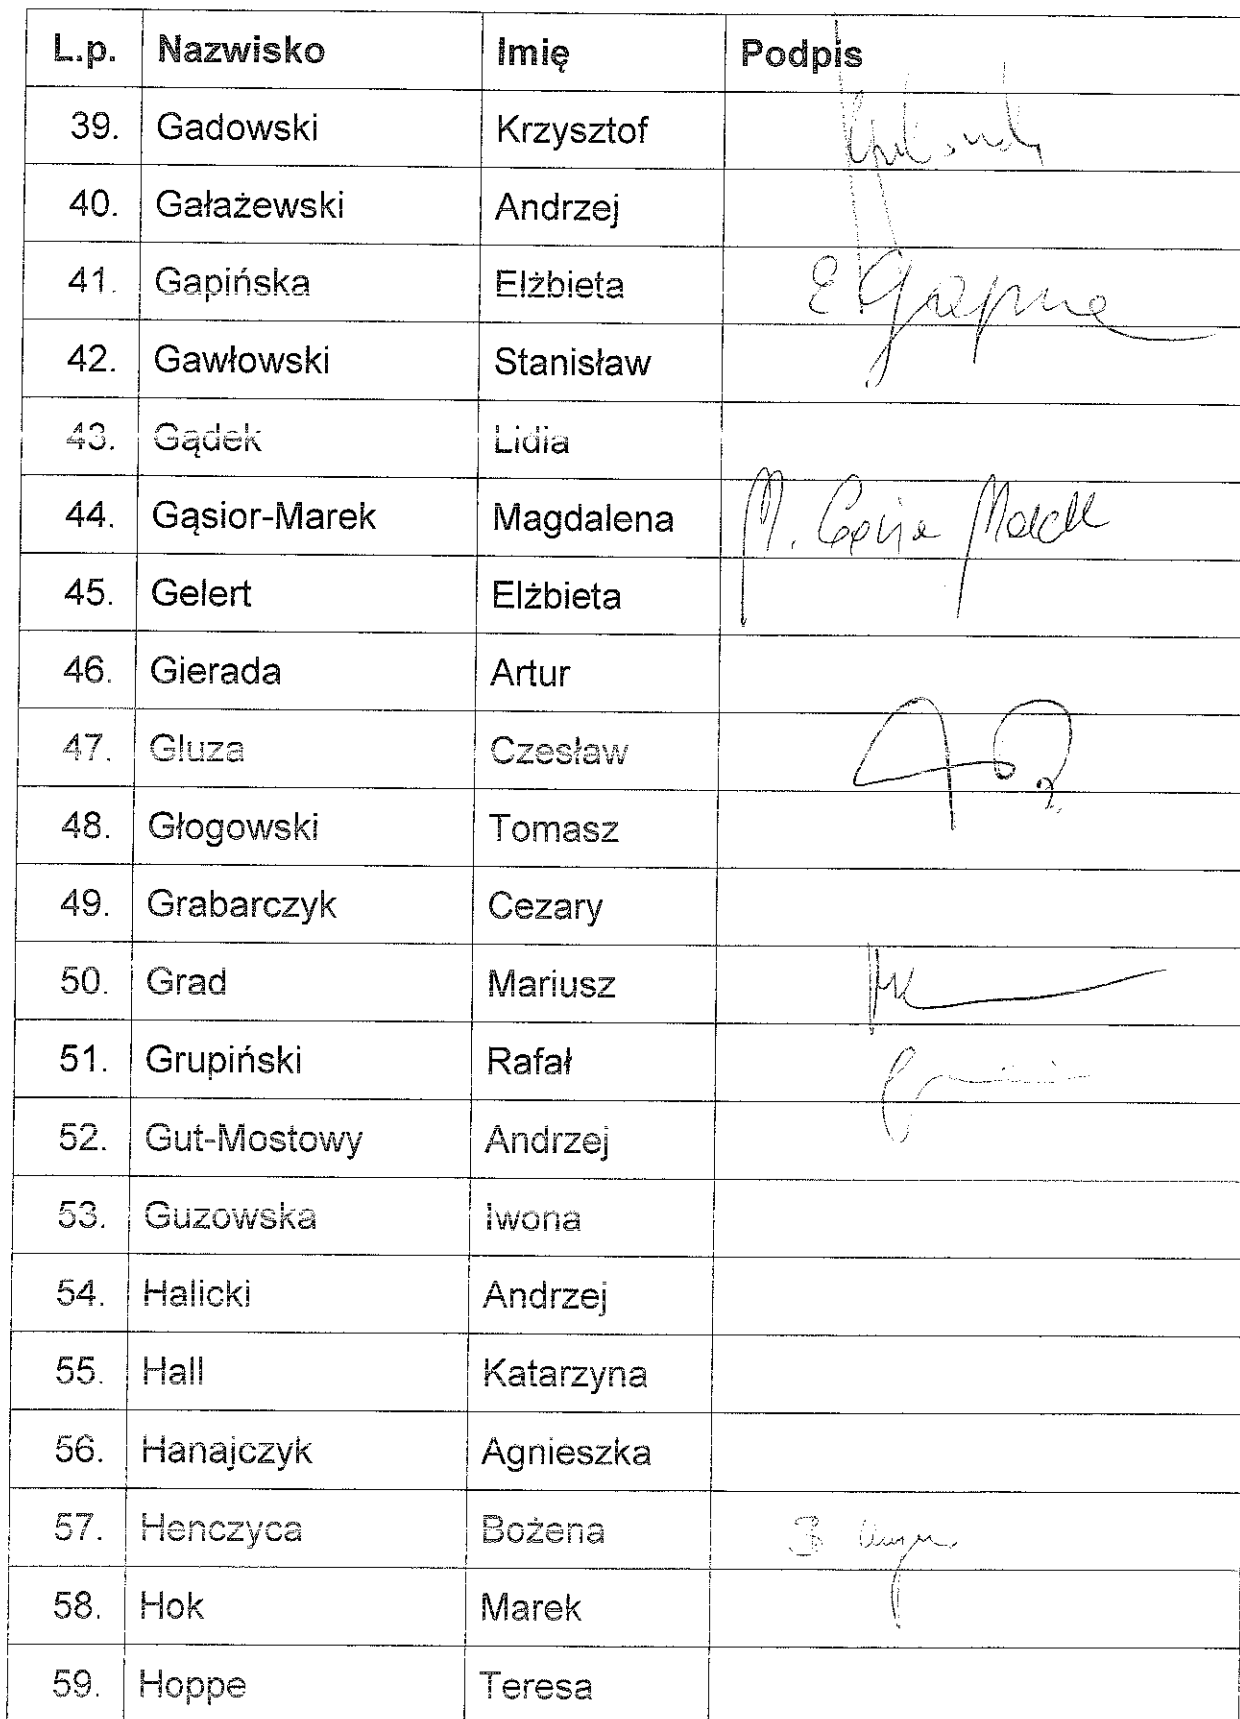 L.p. Nazwisko Imię Podpis
39. Gadowski Krzysztof
40. Gałażewski Andrzej
41. Gapińska Elżbieta E Gapińska
42. Gawłowski Stanisław
43. Gądek Lidia
44. Gąsior-Marek Magdalena M. Gąsior Marek
45. Gelert Elżbieta
46. Gierada Artur
47. Gluza Czesław
48. Głogowski Tomasz
49. Grabarczyk Cezary
50. Grad Mariusz
51. Grupiński Rafał
52. Gut-Mostowy Andrzej
53. Guzowska Iwona
54. Halicki Andrzej
55. Hall Katarzyna
56. Hanajczyk Agnieszka
57. Henczyca Bożena
58. Hok Marek
59. Hoppe Teresa